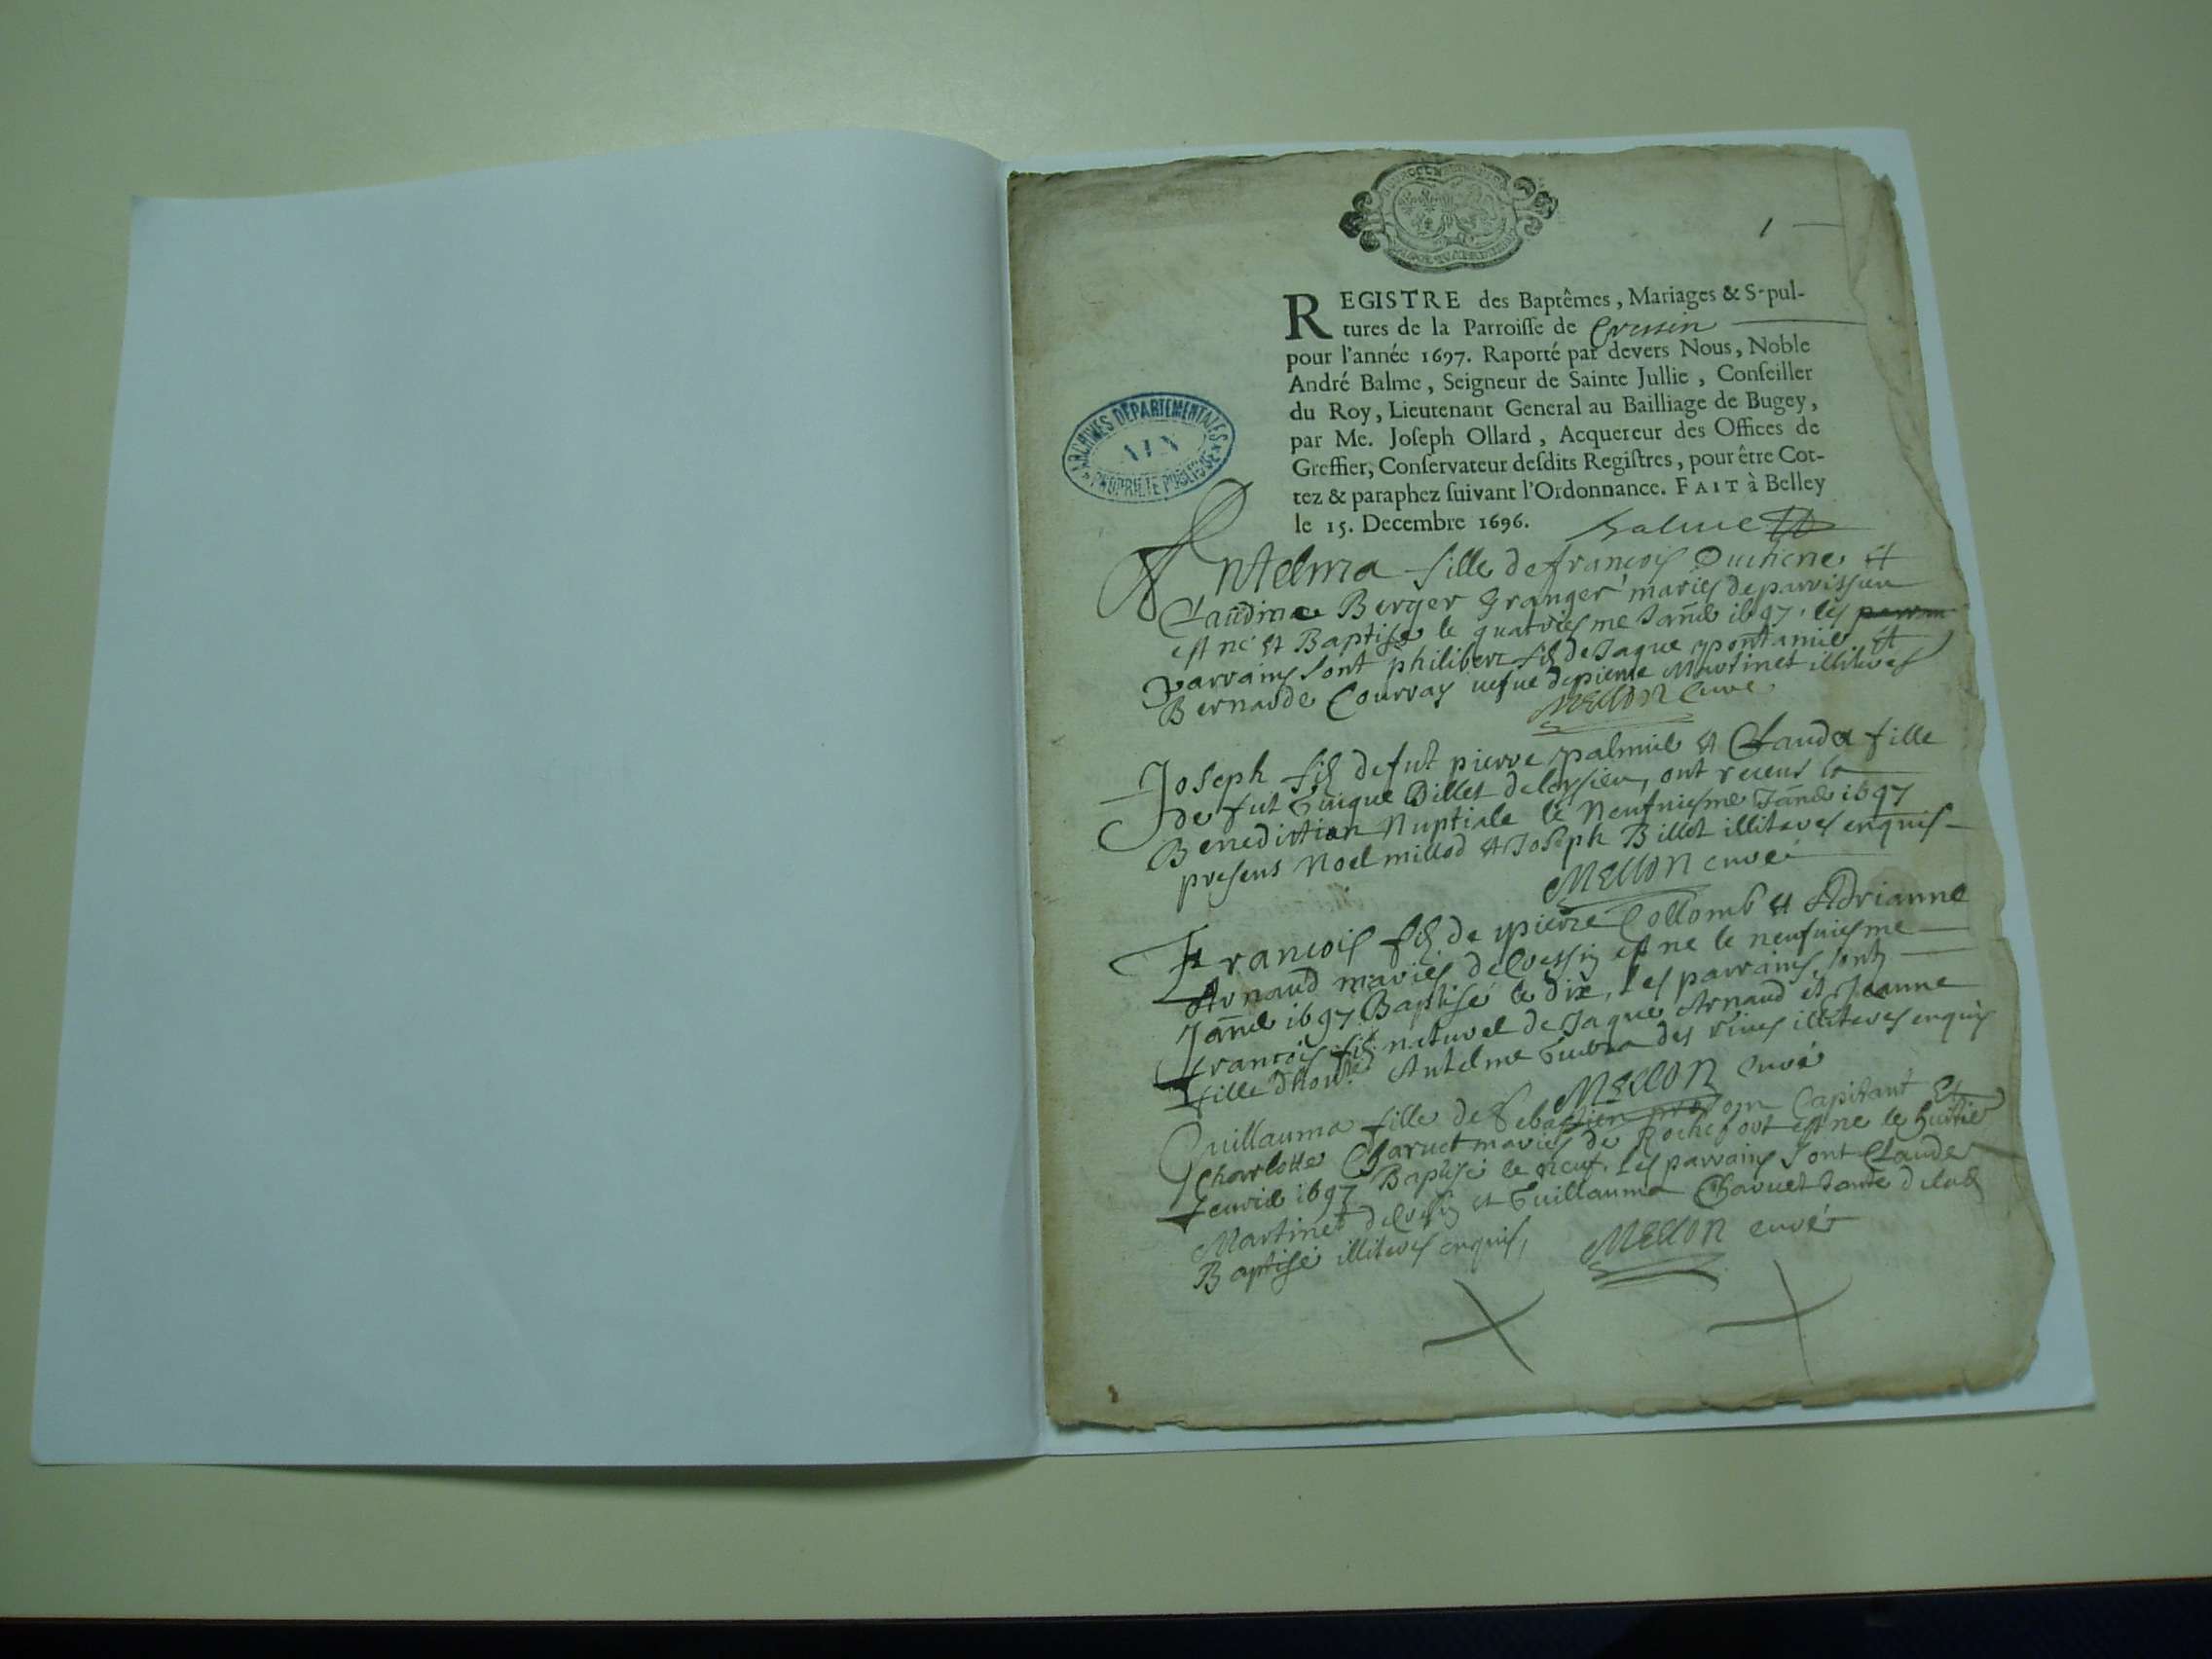 1
REGISTRE des Baptêmes, Mariages & Sepul-
tures de la Parroisse de Cressin
pour l'année 1697. Raporté par devers Nous, Noble
André Balme, Seigneur de Sainte Jullie, Conseiller
du Roy, Lieutenant General au Bailliage de Bugey,
par Me. Joseph Ollard, Acquereur des Offices de
Greffier, Conservateur desdits Registres, pour être Cot-
tez & paraphez suivant l'Ordonnance. FAIT à Belley
le 15. Decembre 1696. Balme
ARCHIVES DEPARTEMENTALES
AIN
PROPRIETE PUBLIQUE
Antelma fille de françois Duchene et
Claudine Berger Granger mariés de parvissieu
est né et Baptisé le quatriesme Janvié 1697, les
parrains sont philibert fils de Jaque pontamié et
Bernarde Courray vefve de pierre Martinet illiterés
Mellon curé
Joseph fils de fut pierre palmié et Clauda fille
de fut Guigue Billet de Leyssieu, ont receus la
Benediction Nuptiale le Neufviesme Janvié 1697
presens Noel millod et Joseph Billot illiterés enquis
Mellon curé
François fils de pierre Collomb et Adrianne
Arnaud mariés de Cressin est ne le neufviesme
Janvié 1697 Baptisé le dix, les parrains sont
françois fils naturel de Jaque Arnaud et Jeanne
fille d'hon. Antelme des rives illiterés enquis
Mellon curé
Guillauma fille de Sebastien Capitant Et
Charlotte Charvet mariés de Rochefort est ne le huitie
Jenvié 1697 Baptisé le neuf. Les parrains sont Claude
Martinet de Cressin et Guillauma Charvet tante de lad.
Baptisé illiterés enquis, Mellon curé